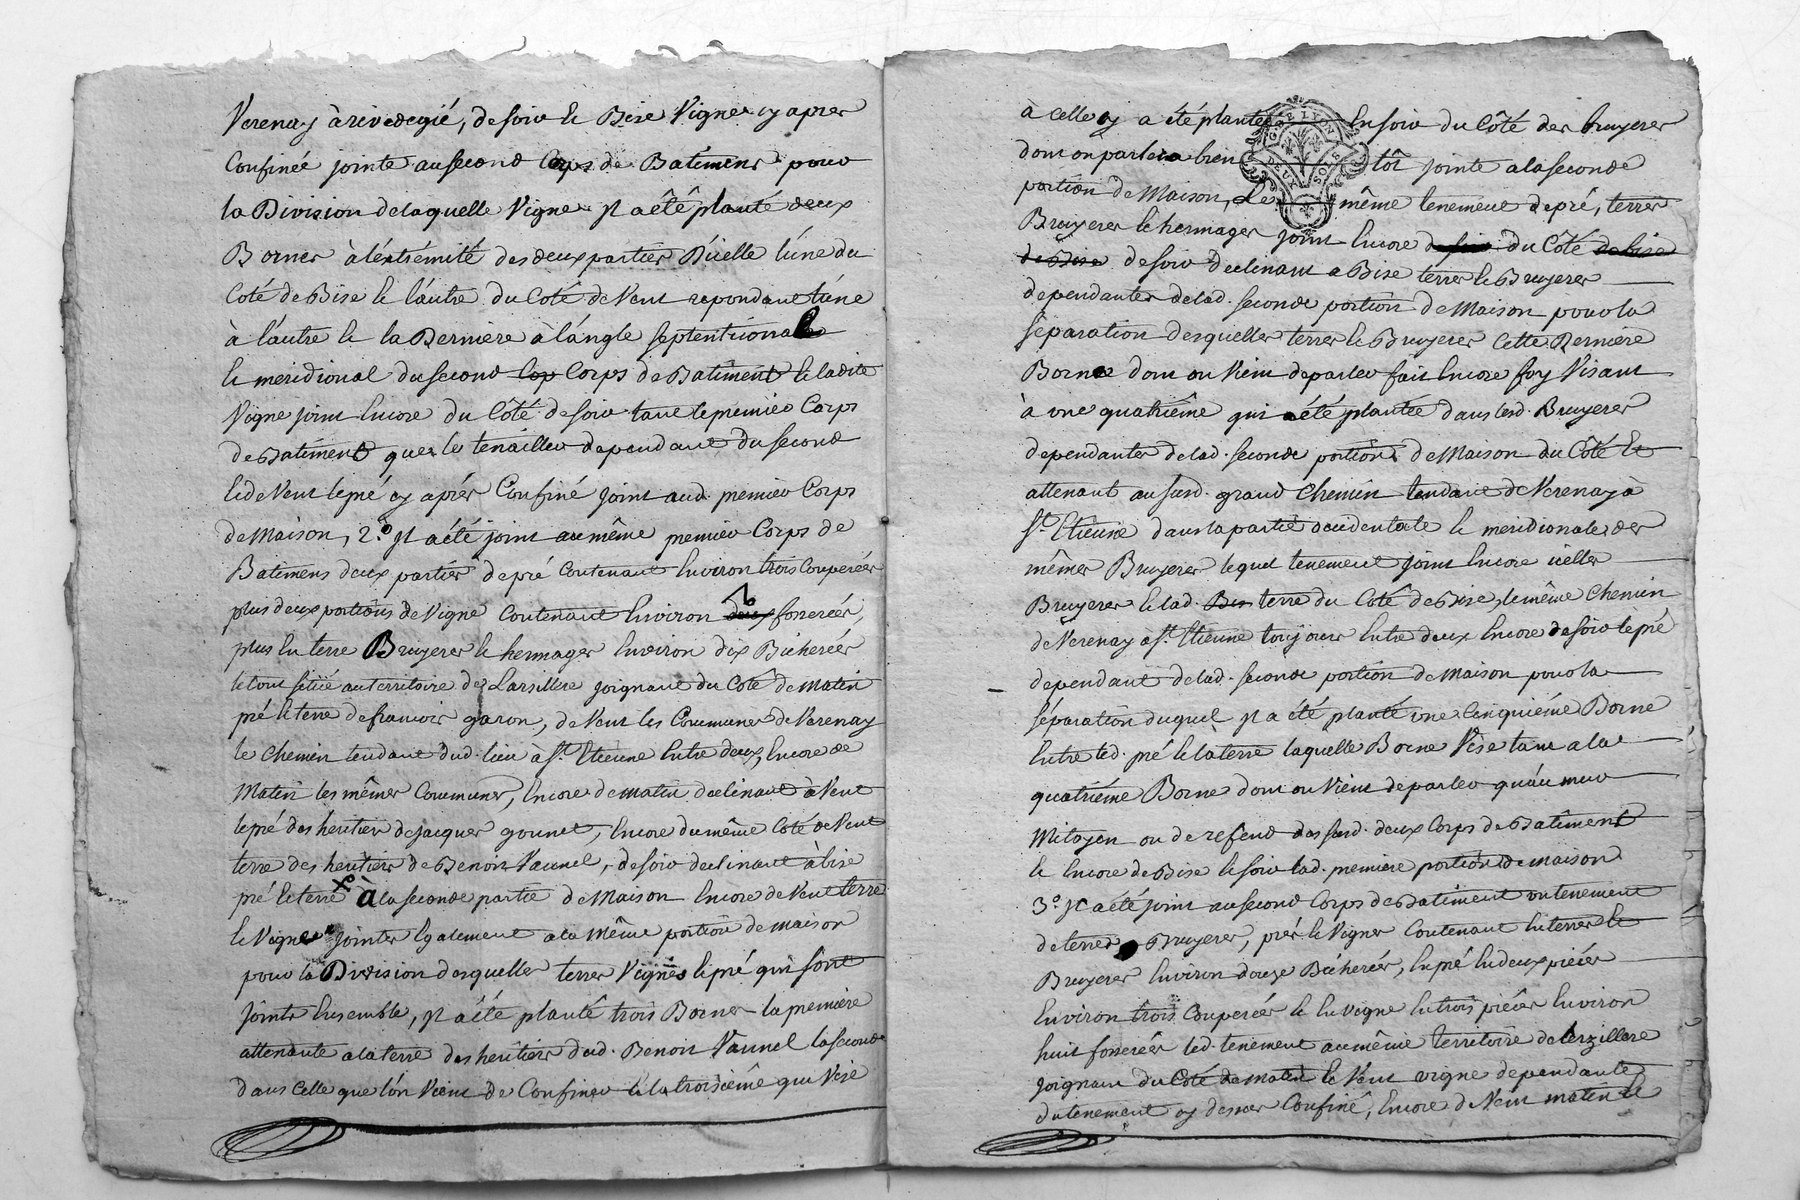 Verenay à rivedegié, de soir et Bise Vigne cy apres
Confinée jointe au second Corps de Batimens pour
la Division de laquelle Vigne Jl a êtê planté deux
Bornes à l'éxtrémité des deux parties D'icelle l'une du
Coté de Bise et l'autre du Coté de Vent repondant l'une
à l'autre et la Derniere à l'angle septentrional
et meridional du second Cop Corps de Batiment et ladite
Vigne joint Encore du Côté de soir tant le premier Corps
de Batiment que les tenailler dependant du second
et de Vent le pré cy aprés Confiné joint aud. premier Corps
de Maison, 2.° Jl a été joint au même premier Corps de
Batimens deux parties de pré Contenant Environ trois Couperées
plus deux portions de Vigne Contenant Environ deux fosserées,
plus En terre Bruyeres et hermages Environ dix Bicherées
le tout sitüé au territoire de Larsillere joignant du Coté de Matin
pré et terre de francois garon, de Vent les Communes de Verenay
le Chemin tendant dud. lieu à S.t Etienne Entre deux, Encore de
Matin les mêmes Communes, Encore de matin declinant à Vent
le pré des heritiers de jacques gounet, Encore du même Coté de Vent
terre des heritiers de Benoit Vaunel, de soir declinant à bise
pré et terre x à la seconde partie de Maison Encore de Vent terre
et Vigne jointes Egalement a la même portion de maison
pour la Division desquelles terres Vignes et pré qui sont
joints Ensemble, Jl a été planté trois Bornes la premiere
attenante a la terre des heritiers dud. Benoit Vaunel la seconde
dans Celle que l'on Vient de Confiner et la troisième qui Vise
à celle cy a été plantée En soir du Côté des bruyeres
dont on parlera bien tôt jointe a la seconde
G. DE LYON
DEUX SOLS
portion de Maison, Le même tenement de pré, terres
Bruyeres et hermages joint Encore de soir du Côté de bise
de Bise de soir declinant a Bise terres et Bruyeres
dependantes de lad. seconde portion de Maison pour la
séparation desquelles terres et Bruyeres Cette Derniere
Borne dont on Vient de parler fait Encore foy Visant
à une quatriéme qui a été plantée dans lesd. Bruyeres
dependantes de lad. seconde portion de Maison du Côté Et
attenant au susd. grand Chemin tendant de Verenay à
S.t Etienne dans la partie occidentale et meridionale des
mêmes Bruyeres lequel tenement joint Encore icelles
Bruyeres et lad. Bis terre du Coté de Bise, le même Chemin
de Verenay a S.t Etienne toujours Entre deux Encore de soir le pré
dependant de lad. seconde portion de Maison pour la
séparation duquel Jl a été planté une Cinquiéme Borne
Entre led. pré et la terre laquelle Borne Vise tant a la
quatriéme Borne dont on Vient de parler qu'au mur
Mitoyen ou de refend des susd. deux Corps de Batiment
et Encore de Bise et soir lad. premiere portion de maison
3.° Jl a été joint au second Corps de Batiment un tenement
de terres Bruyeres, prés et Vignes Contenant En terres et
Bruyeres Environ douze Bicherées, En pré En deux piéces
Environ trois Couperées et En Vigne En trois piéces Environ
huit fosserées led. tenement au même territoire de Lerzillere
joignant du Coté de matin et Vent vigne dependante
du tenement cy dessus Confiné, Encore de Vent matin et